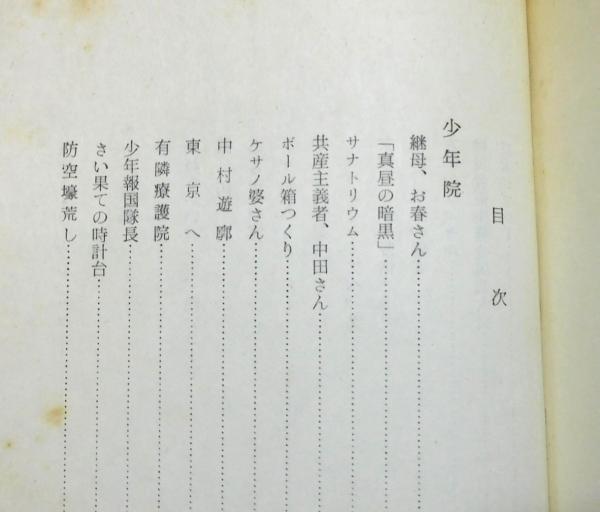 目次
少年院
継母、お春さん
「真昼の暗黒」
サナトリウム
共産主義者、中田さん
ボール箱つくり
ケサノ婆さん
中村遊廓
東京へ
有隣療護院
少年報国隊長
さい果ての時計台
防空壕荒し